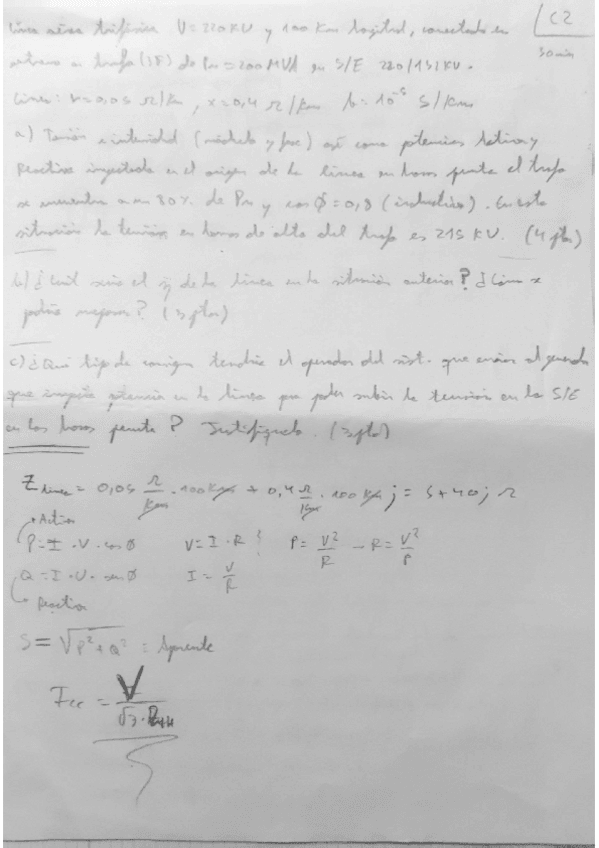 Línea aérea trifásica V=220KV y 100 Km longitud, conectada en
extremo a trafo (3F) de Pn=200 MVA en S/E 220/132KV.
C2
30min
Línea: r=0,05 Ω/km, x=0,4 Ω/km b=10⁻⁵ S/Km
a) Tensión e intensidad (módulo y fase) así como potencias Activa y
Reactiva inyectada en el origen de la línea en horas punta el trafo
se encuentra a un 80% de Pn y cos Ø=0,8 (inductivo). En esta
situación la tensión en bornas de alta del trafo es 215 KV. (4 ptos)
b) ¿Cuál sería el η de la línea en la situación anterior? ¿Cómo se
podría mejorar? (3 ptos)
c) ¿Qué tipo de consigna tendría el operador del sist. que enviar al generador
que inyecta potencia en la línea para poder subir la tensión en la S/E
en las horas punta? Justifíquelo. (3 ptos)
Z línea = 0,05 Ω/Km · 100Km + 0,4 Ω/Km · 100 Km j = 5+40j Ω
Activa
P=I·V·cosØ V=I·R P=V²/R - R=V²/P
Q=I·V·senØ I=V/R
Reactiva
S=√P²+Q² = Aparente
Icc = V/√3·